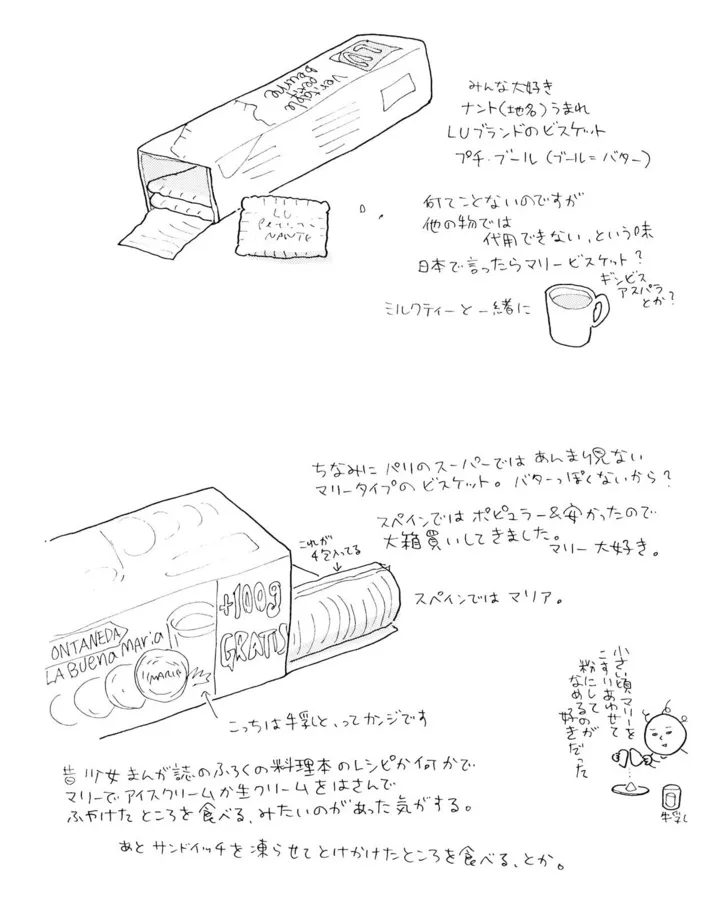 LU
Véritable
petit
beurre
LU
Petit
NANTES
みんな大好き
ナント(地名)うまれ
LUブランドのビスケット
プチ・ブール (ブール=バター)
何てことないのですが
他の物では
代用できない、という味
日本で言ったらマリービスケット?
ギンビス
アスパラ
とか?
ミルクティーと一緒に
ちなみに パリのスーパーでは あんまり見ない
マリータイプの ビスケット。バターっぽくないから?
スペインでは ポピュラー&安かったので
大箱買いしてきました。
マリー大好き。
これが
4包入ってる
スペインでは マリア。
+100g
GRATIS
ONTANEDA
LA BUena MARia
MARIA
こっちは牛乳と、ってカンジです
小さい頃マリーを
こすりあわせて
粉にして
なめるのが
好きだった
牛乳
昔 少女まんが誌のふろくの料理本のレシピか何かで
マリーでアイスクリームか生クリームをはさんで
ふやけたところを食べる、みたいのがあった気がする。
あと サンドイッチを凍らせてとけかけたところを食べる、とか。